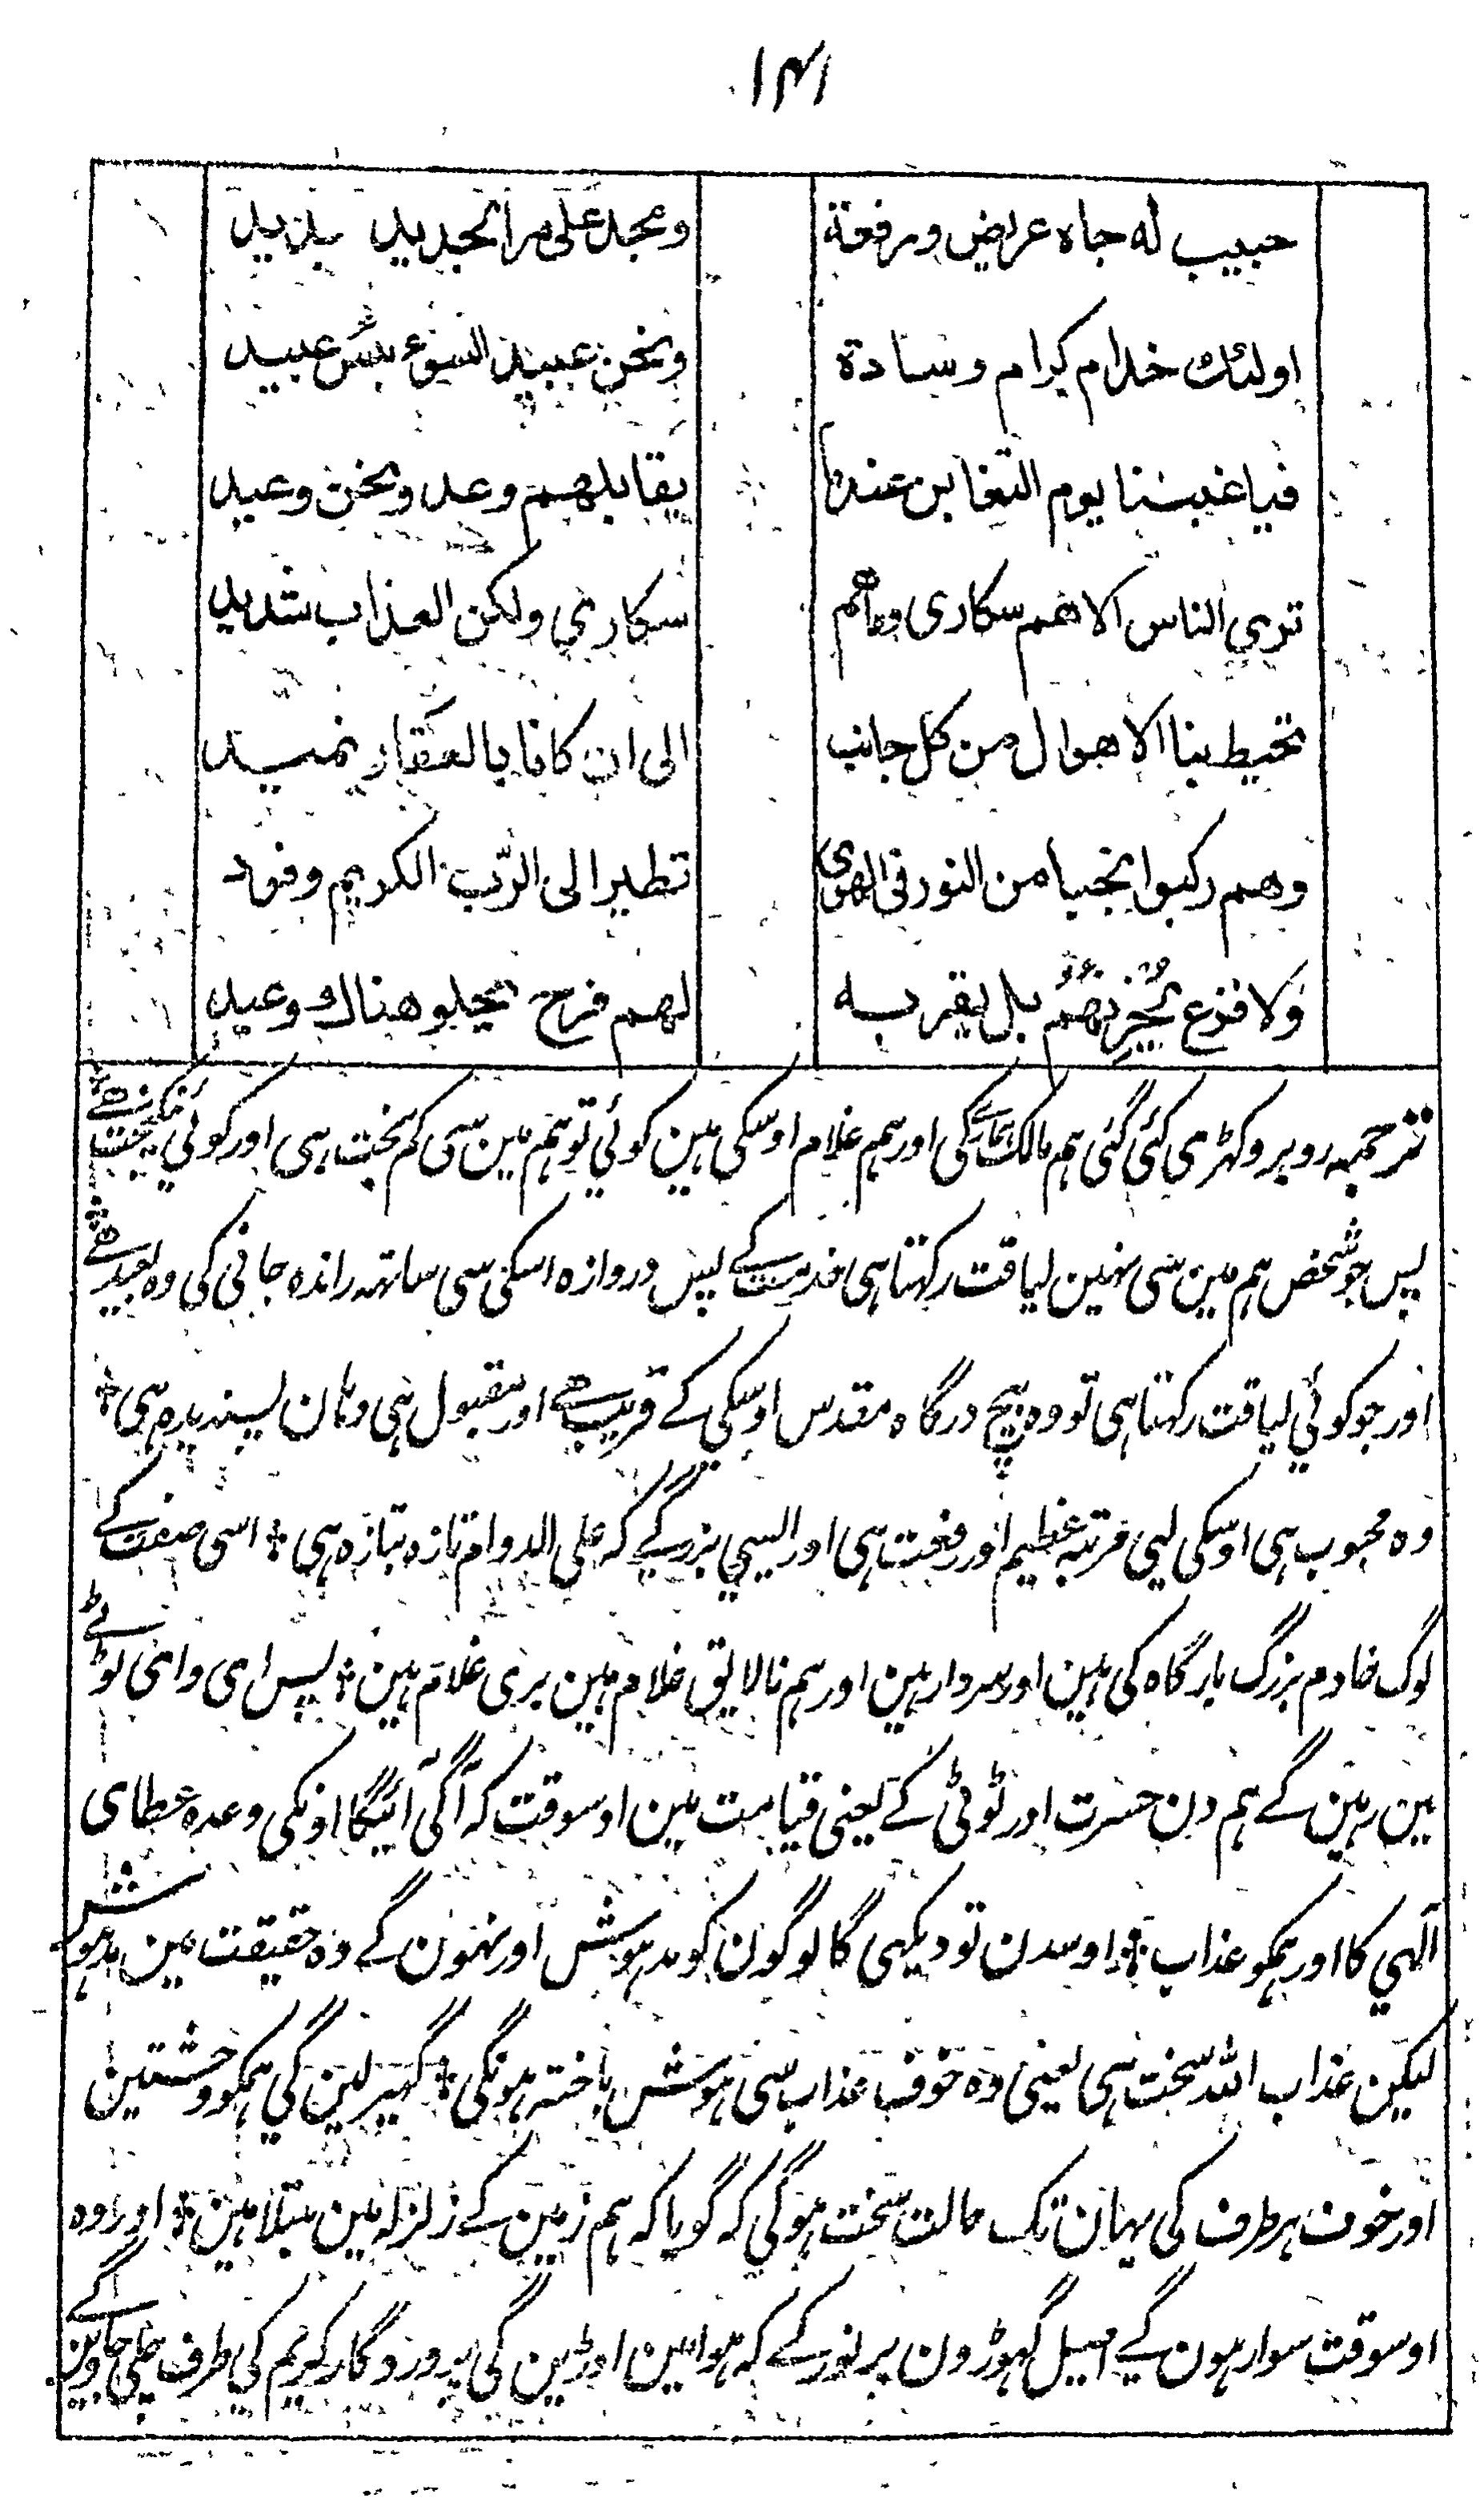 ۱۴۱
حبيب له جاه عريض ورفعة ومجد على مر الجديد يزيد
اولئك خدام كرام وسادة ونحن عبيد السوء بئس عبيد
فيا غبننا يوم التغابن عندما يقابلهم وعد ونحن وعيد
ترى الناس الاهم سكارى وماهم سكارى ولكن العذاب شديد
تحيط بنا الاهوال من كل جانب الى ان كانا بالعقار نميد
وهم ركبوا نجبا من النور فى الهوى تطير الى الرّب الكريم وفود
ولا فزع يُحْزِنهُمُ بل يقر به لهم فرح يحلو هناك وعيد
ترجمہ روبرو کہڑی کئی گئی ہم مالک ہمارے کی اور ہم غلام اوسکی ہین کوئی تو ہم مین سی کم بخت ہی اور کوئی نیکبخت ہے
پس جو شخص ہم مین سی نہین لیاقت رکہتا ہی خدمت کے پس دروازہ اسکی سی ساتہہ راندہ جانی کی وہ بعید ہے
اور جو کوئی لیاقت رکہتا ہی تو وہ بیچ درگاہ مقدس اوسکی کے قریب ہے اور مقبول ہی وہان پسندیدہ ہی ؛
وہ محبوب ہی اوسکی لیی مرتبہ عظیم اور رفعت ہی اور ایسی بزرگے کہ علی الدوام تازہ بتازہ ہی ؛ اسی صفت کے
لوگ خادم بزرگ بارگاہ کی ہین اور سردار ہین اور ہم نالایق غلام ہین بری غلام ہین ؛ پس ای وامی ٹوٹے
ین رہین گے ہم دن حسرت اور ٹوٹی کے یعنی قیامت مین اوسوقت کہ آگی آئیگا اونکی وعدہ عطای
الٰہی کا اور ہمکو عذاب ؛ اوسدن تو دیکہی گا لوگون کو مدہوش اور نہون گے وہ حقیقت مین مدہوش
لیکن عذاب اللہ سخت ہی یعنی وہ خوف عذاب سی ہوش باختہ ہونگی ؛ گہیر لین گی ہمکو وحشتین
اور خوف ہر طرف کی یہان تک حالت سخت ہوگی کہ گویا کہ ہم زمین کے زلزلہ مین مبتلا ہین ؛ اور وہ
اوسوقت سوار ہون گے اصیل گہوڑون پر نور کے کہ ہوا مین اوڑین گی پروردگار کریم کی طرف چلی جاوین گے